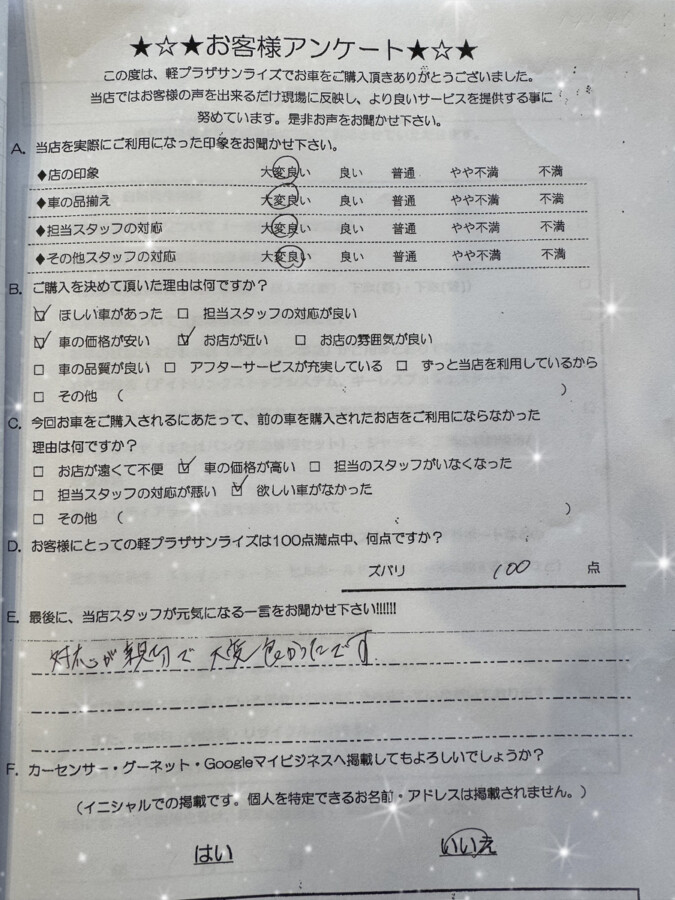 ★☆★お客様アンケート★☆★
この度は、軽プラザサンライズでお車をご購入頂きありがとうございました。
当店ではお客様の声を出来るだけ現場に反映し、より良いサービスを提供する事に
努めています。是非お声をお聞かせ下さい。
A. 当店を実際にご利用になった印象をお聞かせ下さい。
◆店の印象 大変良い 良い 普通 やや不満 不満
◆車の品揃え 大変良い 良い 普通 やや不満 不満
◆担当スタッフの対応 大変良い 良い 普通 やや不満 不満
◆その他スタッフの対応 大変良い 良い 普通 やや不満 不満
B. ご購入を決めて頂いた理由は何ですか?
☑ ほしい車があった □ 担当スタッフの対応が良い
☑ 車の価格が安い ☑ お店が近い □ お店の雰囲気が良い
□ 車の品質が良い □ アフターサービスが充実している □ ずっと当店を利用しているから
□ その他 ( )
C. 今回お車をご購入されるにあたって、前の車を購入されたお店をご利用にならなかった
理由は何ですか?
□ お店が遠くて不便 ☑ 車の価格が高い □ 担当のスタッフがいなくなった
□ 担当スタッフの対応が悪い ☑ 欲しい車がなかった
□ その他 ( )
D. お客様にとっての軽プラザサンライズは100点満点中、何点ですか?
ズバリ 100 点
E. 最後に、当店スタッフが元気になる一言をお聞かせ下さい!!!!!!
対応が親切で 大変良かったです
F. カーセンサー・グーネット・Googleマイビジネスへ掲載してもよろしいでしょうか?
(イニシャルでの掲載です。個人を特定できるお名前・アドレスは掲載されません。)
はい いいえ